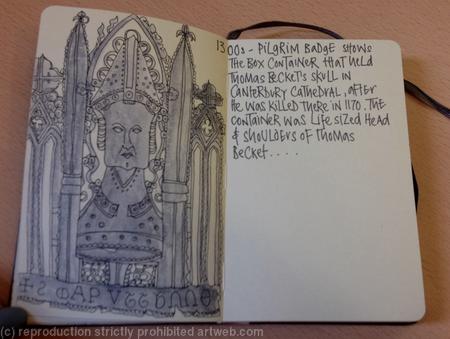 1300s - PILGRIM BADGE SHOWS
THE BOX CONTAINER THAT HELD
THOMAS BECKET'S SKULL IN
CANTERBURY CATHEDRAL, AFTER
HE WAS KILLED THERE IN 1170. THE
CONTAINER WAS LIFE SIZED HEAD
& SHOULDERS OF THOMAS
BECKET....
(c) reproduction strictly prohibited artweb.com